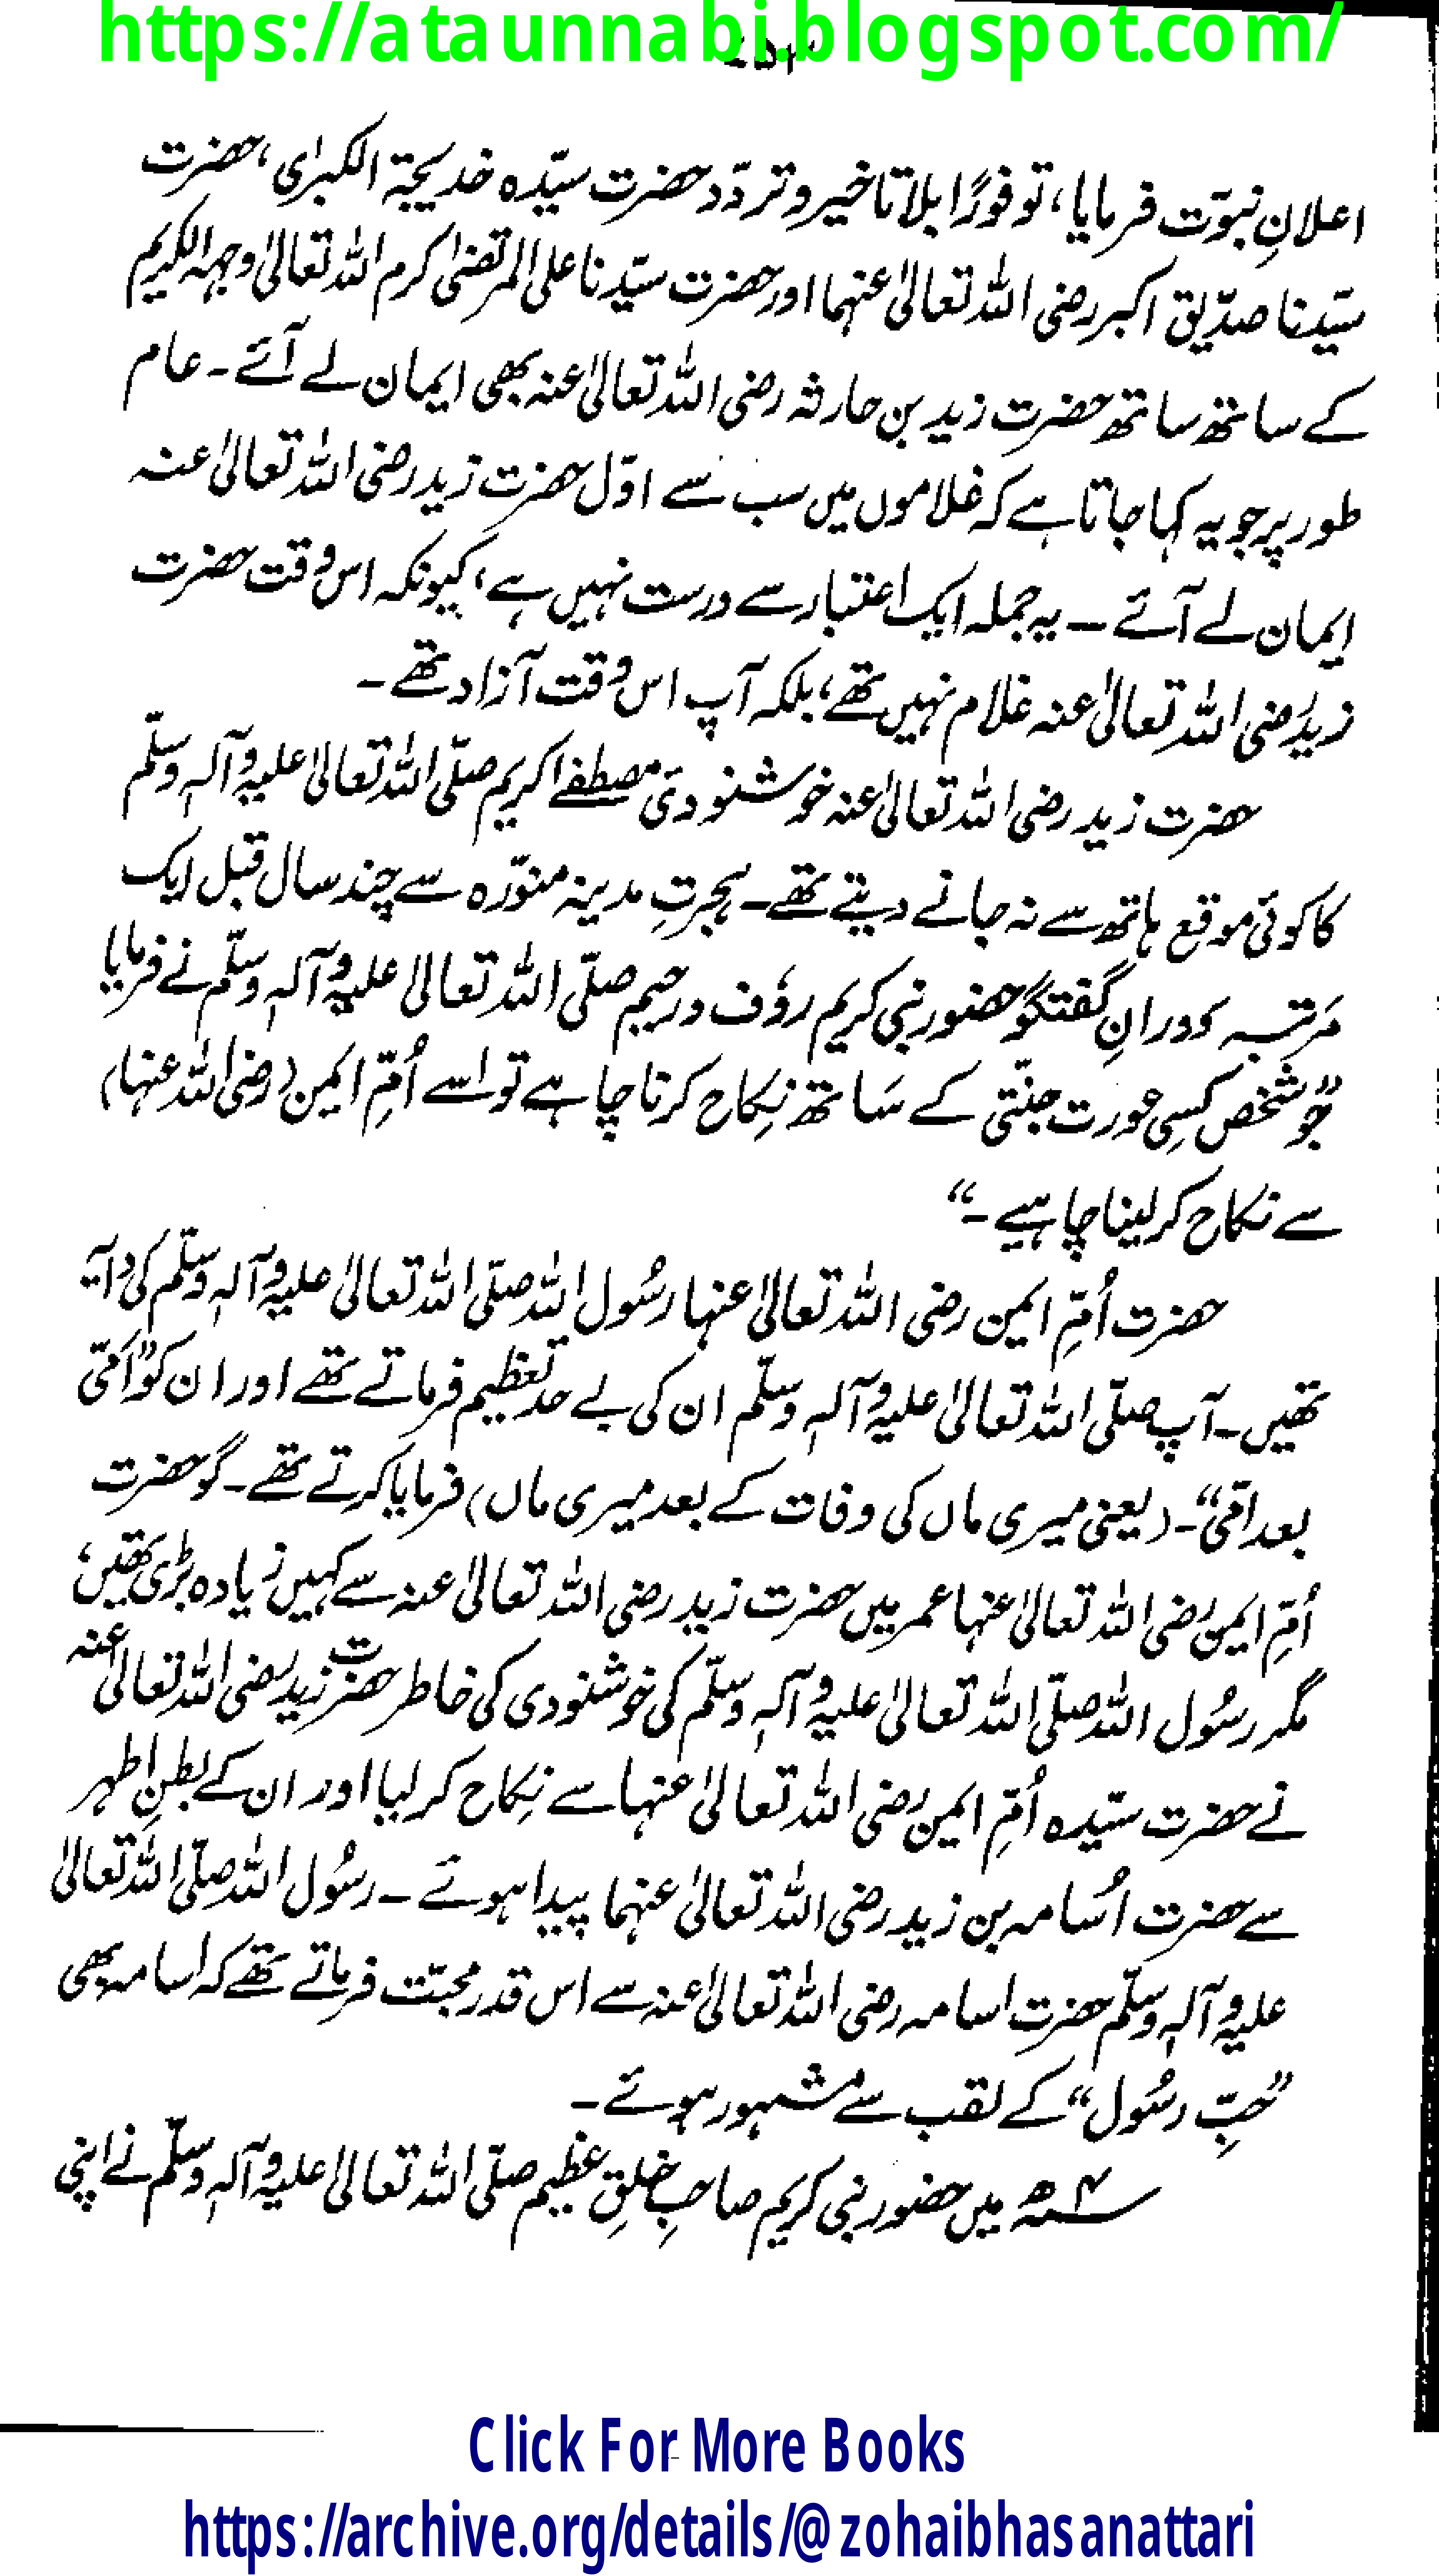 https://ataunnabi.blogspot.com/
اعلانِ نبوّت فرمایا، تو فورًا بلاتاخیر و تردّد حضرت سیّدہ خدیجۃ الکبرٰی، حضرت
سیّدنا صدّیق اکبر رضی اللہ تعالیٰ عنہما اور حضرت سیّدنا علی المرتضیٰ کرم اللہ تعالیٰ وجہہ الکریم
کے ساتھ ساتھ حضرت زید بن حارثہ رضی اللہ تعالیٰ عنہ بھی ایمان لے آئے ۔ عام
طور پر جو یہ کہا جاتا ہے کہ غلاموں میں سب سے اوّل حضرت زید رضی اللہ تعالیٰ عنہ
ایمان لے آئے ۔ یہ جملہ ایک اعتبار سے درست نہیں ہے، کیونکہ اس وقت حضرت
زید رضی اللہ تعالیٰ عنہ غلام نہیں تھے، بلکہ آپ اس وقت آزاد تھے ۔
حضرت زید رضی اللہ تعالیٰ عنہ خوشنودیِ مصطفےٰ کریم صلّی اللہ تعالیٰ علیہ وآلہٖ وسلّم
کا کوئی موقع ہاتھ سے نہ جانے دیتے تھے ۔ ہجرتِ مدینہ منوّرہ سے چند سال قبل ایک
مَرتبہ دورانِ گفتگو حضور نبی کریم رؤف و رحیم صلّی اللہ تعالیٰ علیہ وآلہٖ وسلّم نے فرمایا
”جو شخص کسِی عورت جنّتی کے سَاتھ نِکاح کرنا چاہے تو اسے اُمِّ ایمن (رضی اللہ عنہا)
سے نکاح کر لینا چاہیے ۔“
حضرت اُمِّ ایمن رضی اللہ تعالیٰ عنہا رسُول اللہ صلّی اللہ تعالیٰ علیہ وآلہٖ وسلّم کی دایہ
تھیں ۔ آپ صلّی اللہ تعالیٰ علیہ وآلہٖ وسلّم ان کی بے حد تعظیم فرماتے تھے اور ان کو ”اُمّی
بعد امّی“ ۔ (یعنی میری ماں کی وفات کے بعد میری ماں) فرمایا کرتے تھے ۔ گو حضرت
اُمِّ ایمن رضی اللہ تعالیٰ عنہا عمر میں حضرت زید رضی اللہ تعالیٰ عنہ سے کہیں زیادہ بڑی تھیں،
مگر رسُول اللہ صلّی اللہ تعالیٰ علیہ وآلہٖ وسلّم کی خوشنودی کی خاطر حضرت زید رضی اللہ تعالیٰ عنہ
نے حضرت سیّدہ اُمِّ ایمن رضی اللہ تعالیٰ عنہا سے نِکاح کر لیا اور ان کے بطنِ اطہر
سے حضرت اُسامہ بن زید رضی اللہ تعالیٰ عنہما پیدا ہوئے ۔ رسُول اللہ صلّی اللہ تعالیٰ
علیہ وآلہٖ وسلّم حضرت اسامہ رضی اللہ تعالیٰ عنہ سے اس قدر محبّت فرماتے تھے کہ اسامہ بھی
”حبِّ رسُول“ کے لقب سے مشہور ہوئے ۔
۴ھ میں حضور نبی کریم صاحبِ خلقِ عظیم صلّی اللہ تعالیٰ علیہ وآلہٖ وسلّم نے اپنی
Click For More Books
https://archive.org/details/@zohaibhasanattari